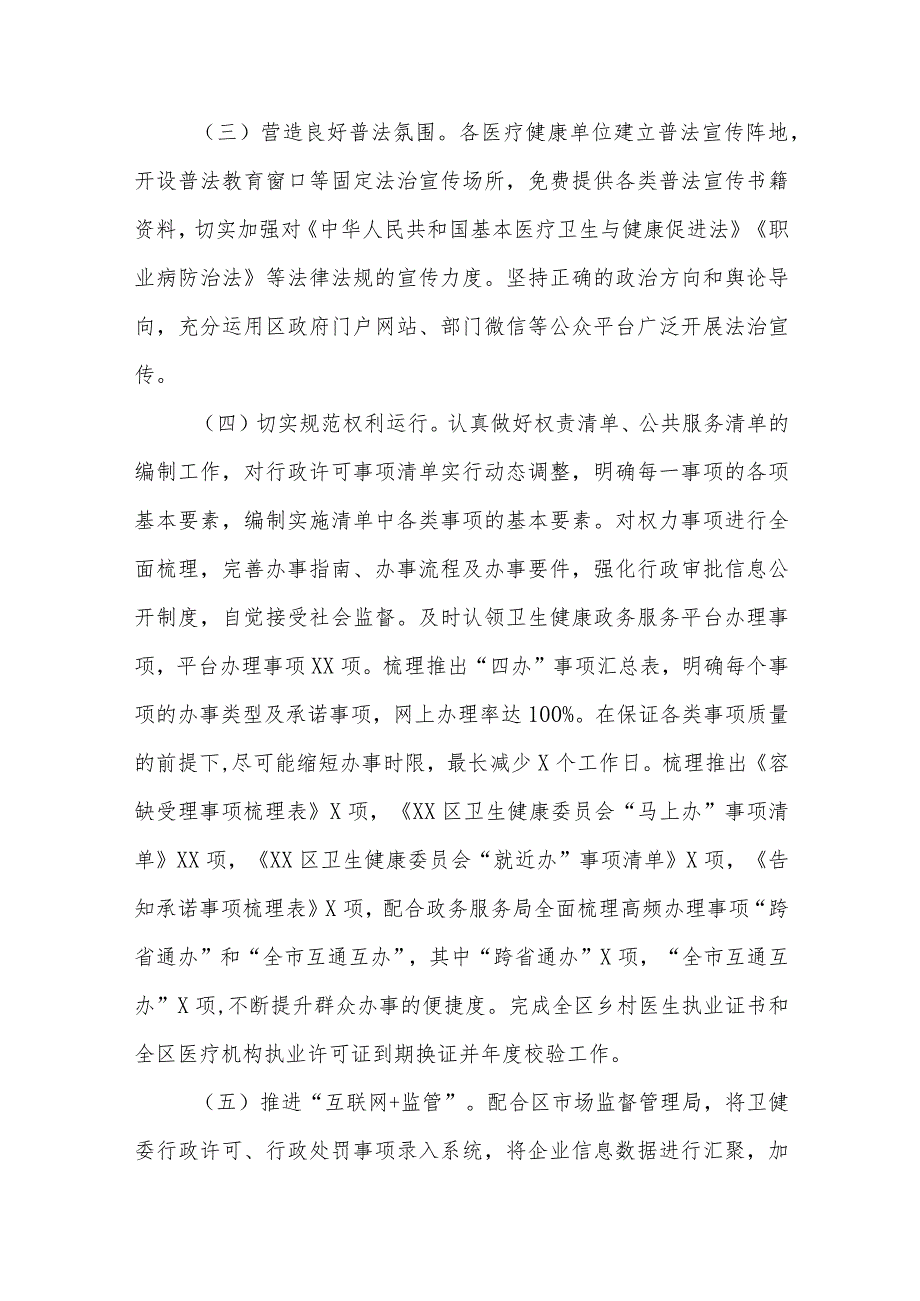 （三）营造良好普法氛围。各医疗健康单位建立普法宣传阵地，
开设普法教育窗口等固定法治宣传场所，免费提供各类普法宣传书籍
资料，切实加强对《中华人民共和国基本医疗卫生与健康促进法》《职
业病防治法》等法律法规的宣传力度。坚持正确的政治方向和舆论导
向，充分运用区政府门户网站、部门微信等公众平台广泛开展法治宣
传。
（四）切实规范权利运行。认真做好权责清单、公共服务清单的
编制工作，对行政许可事项清单实行动态调整，明确每一事项的各项
基本要素，编制实施清单中各类事项的基本要素。对权力事项进行全
面梳理，完善办事指南、办事流程及办事要件，强化行政审批信息公
开制度，自觉接受社会监督。及时认领卫生健康政务服务平台办理事
项，平台办理事项XX项。梳理推出“四办”事项汇总表，明确每个事
项的办事类型及承诺事项，网上办理率达100%。在保证各类事项质量
的前提下,尽可能缩短办事时限，最长减少X个工作日。梳理推出《容
缺受理事项梳理表》X项，《XX区卫生健康委员会“马上办”事项清
单》XX项，《XX区卫生健康委员会“就近办”事项清单》X项，《告
知承诺事项梳理表》X项，配合政务服务局全面梳理高频办理事项“跨
省通办”和“全市互通互办”，其中“跨省通办”X项，“全市互通互
办”X项,不断提升群众办事的便捷度。完成全区乡村医生执业证书和
全区医疗机构执业许可证到期换证并年度校验工作。
（五）推进“互联网+监管”。配合区市场监督管理局，将卫健
委行政许可、行政处罚事项录入系统，将企业信息数据进行汇聚，加